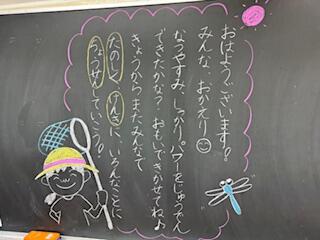 おはようございます！
みんな、おかえり☺
なつやすみ、しっかりパワーをじゅうでん
できたかな？おもいできかせてね♪
きょうからまたみんなで
たのしく げんきに、いろんなことに
ちょうせんしていこう！